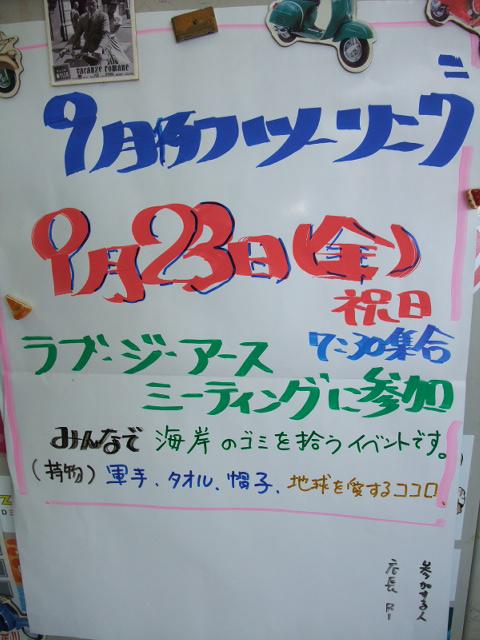 vacanze romane
9月のツーリング
9月23日(金)
祝日
7:30集合
ラブ・ジ・アース
ミーティングに参加
みんなで 海岸のゴミを拾うイベントです。
(持物) 軍手、タオル、帽子、地球を愛するココロ
参加する人
店長 RI